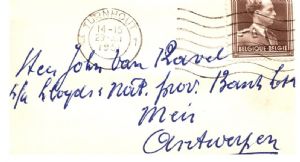 TURNHOUT
14-15
BELGIQUE-BELGIE
Heer John Van Ravel
c/o Lloyds & Nat. Prov. Bank Ltd
Meir
Antwerpen